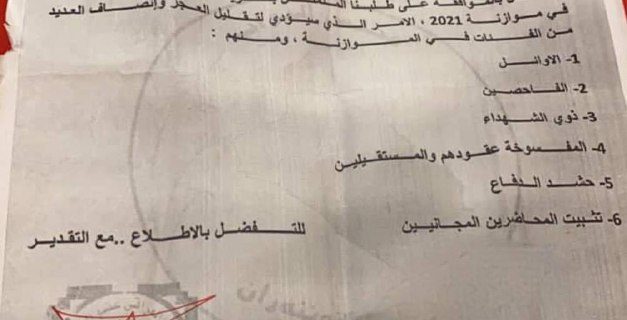 بالموافقة على طلبنا
في موازنة 2021 ، الامر الذي سيؤدي لتقليل العجز وإنصاف العديد
من الفئات في الموازنة ، ومنهم :
1- الاوائل
2- الفاحصين
3- ذوي الشهداء
4- المفسوخة عقودهم والمستقيلين
5- حشد الدفاع
6- تثبيت المحاضرين المجانيين
للتفضل بالاطلاع ..مع التقدير